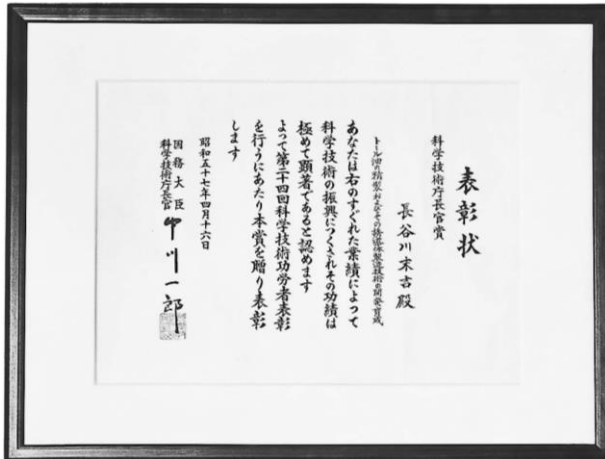 表彰状
科学技術庁長官賞
長谷川末吉殿
トール油の精製ならびにその誘導体製造技術の開発育成
あなたは右のすぐれた業績によって
科学技術の振興につくされその功績は
極めて顕著であると認めます
よって第二十四回科学技術功労者表彰
を行うにあたり本賞を贈り表彰
します
昭和五十七年四月十六日
国務大臣
科学技術庁長官 中川一郎